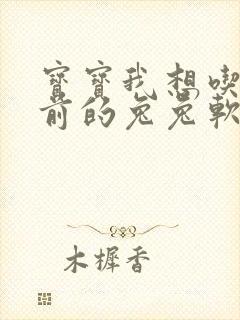 寶寶我想喫
前的兔兔軟
木樨香